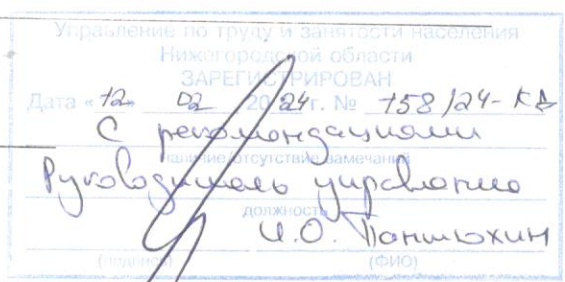 Управление по труду и занятости населения
Нижегородской области
ЗАРЕГИСТРИРОВАН
Дата «12» 02 2024 г. № 158/24-КД
С рекомендациями
наличие/отсутствие замечаний
Руководитель управления
должность
И.О. Панюхин
(подпись) (ФИО)